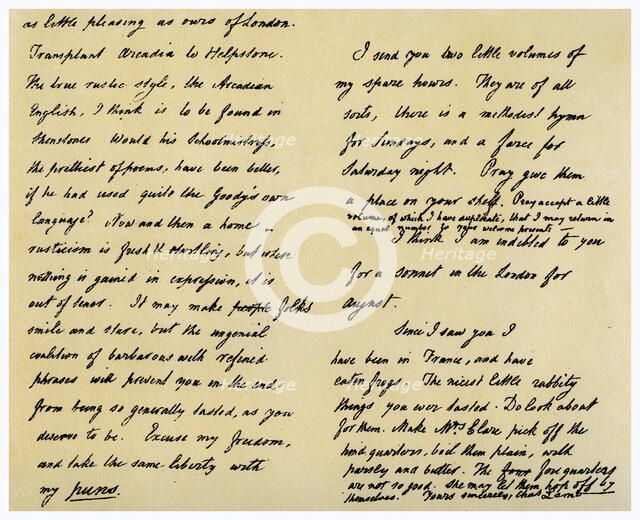 as little pleasing as ours of London.
Transplant Arcadia to Helpstone.
The true rustic style, the Arcadian
English, I think is to be found in
Shenstones. Would his Schoolmistress,
the prettiest of poems, have been better,
if he had used quite the Goody's own
language? Now and then a home
rusticism is fresh & startling, but where
nothing is gained in expression, it is
out of tenor. It may make people folks
smile and stare, but the ungenial
coalition of barbarous with refined
phrases will prevent you in the end
from being so generally tasted, as you
deserve to be. Excuse my freedom,
and take the same liberty with
my puns.
I send you two little volumes of
my spare hours. They are of all
sorts, there is a methodist hymn
for Sundays, and a farce for
Saturday night. Pray give them
a place on your shelf. Pray accept a little
volume, of which I have duplicate, that I may return in
an equal number to your welcome presents —
I think I am indebted to you
for a sonnet in the London for
August.
Since I saw you I
have been in France, and have
eaten frogs. The nicest little rabbity
things you ever tasted. Do look about
for them. Make Mrs Clare pick off the
hind quarters, boil them plain, with
parsley and butter. The four fore quarters
are not so good. She may let them hop off by
themselves. Yours sincerely, Chas Lamb
Heritage
Heritage
Heritage
Heritage
Heritage
Heritage
©